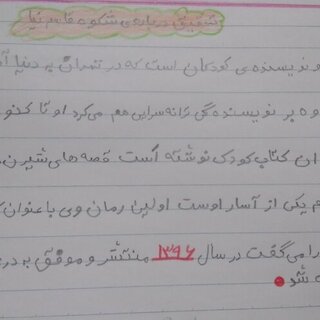 تحقیق درباره ی شکوه قاسم نیا
و نویسنده ی کودکان است که در تهران به دنیا آ
وه بر نویسنده گی ترانه سرایی هم می کرد او تا کنو
ان کتاب کودک نوشته است. قصه های شیرین
م یکی از آسار اوست اولین رمان وی با عنوان
را می گفت در سال ۱۳۹۶ منتشر و موفق به در
شد.